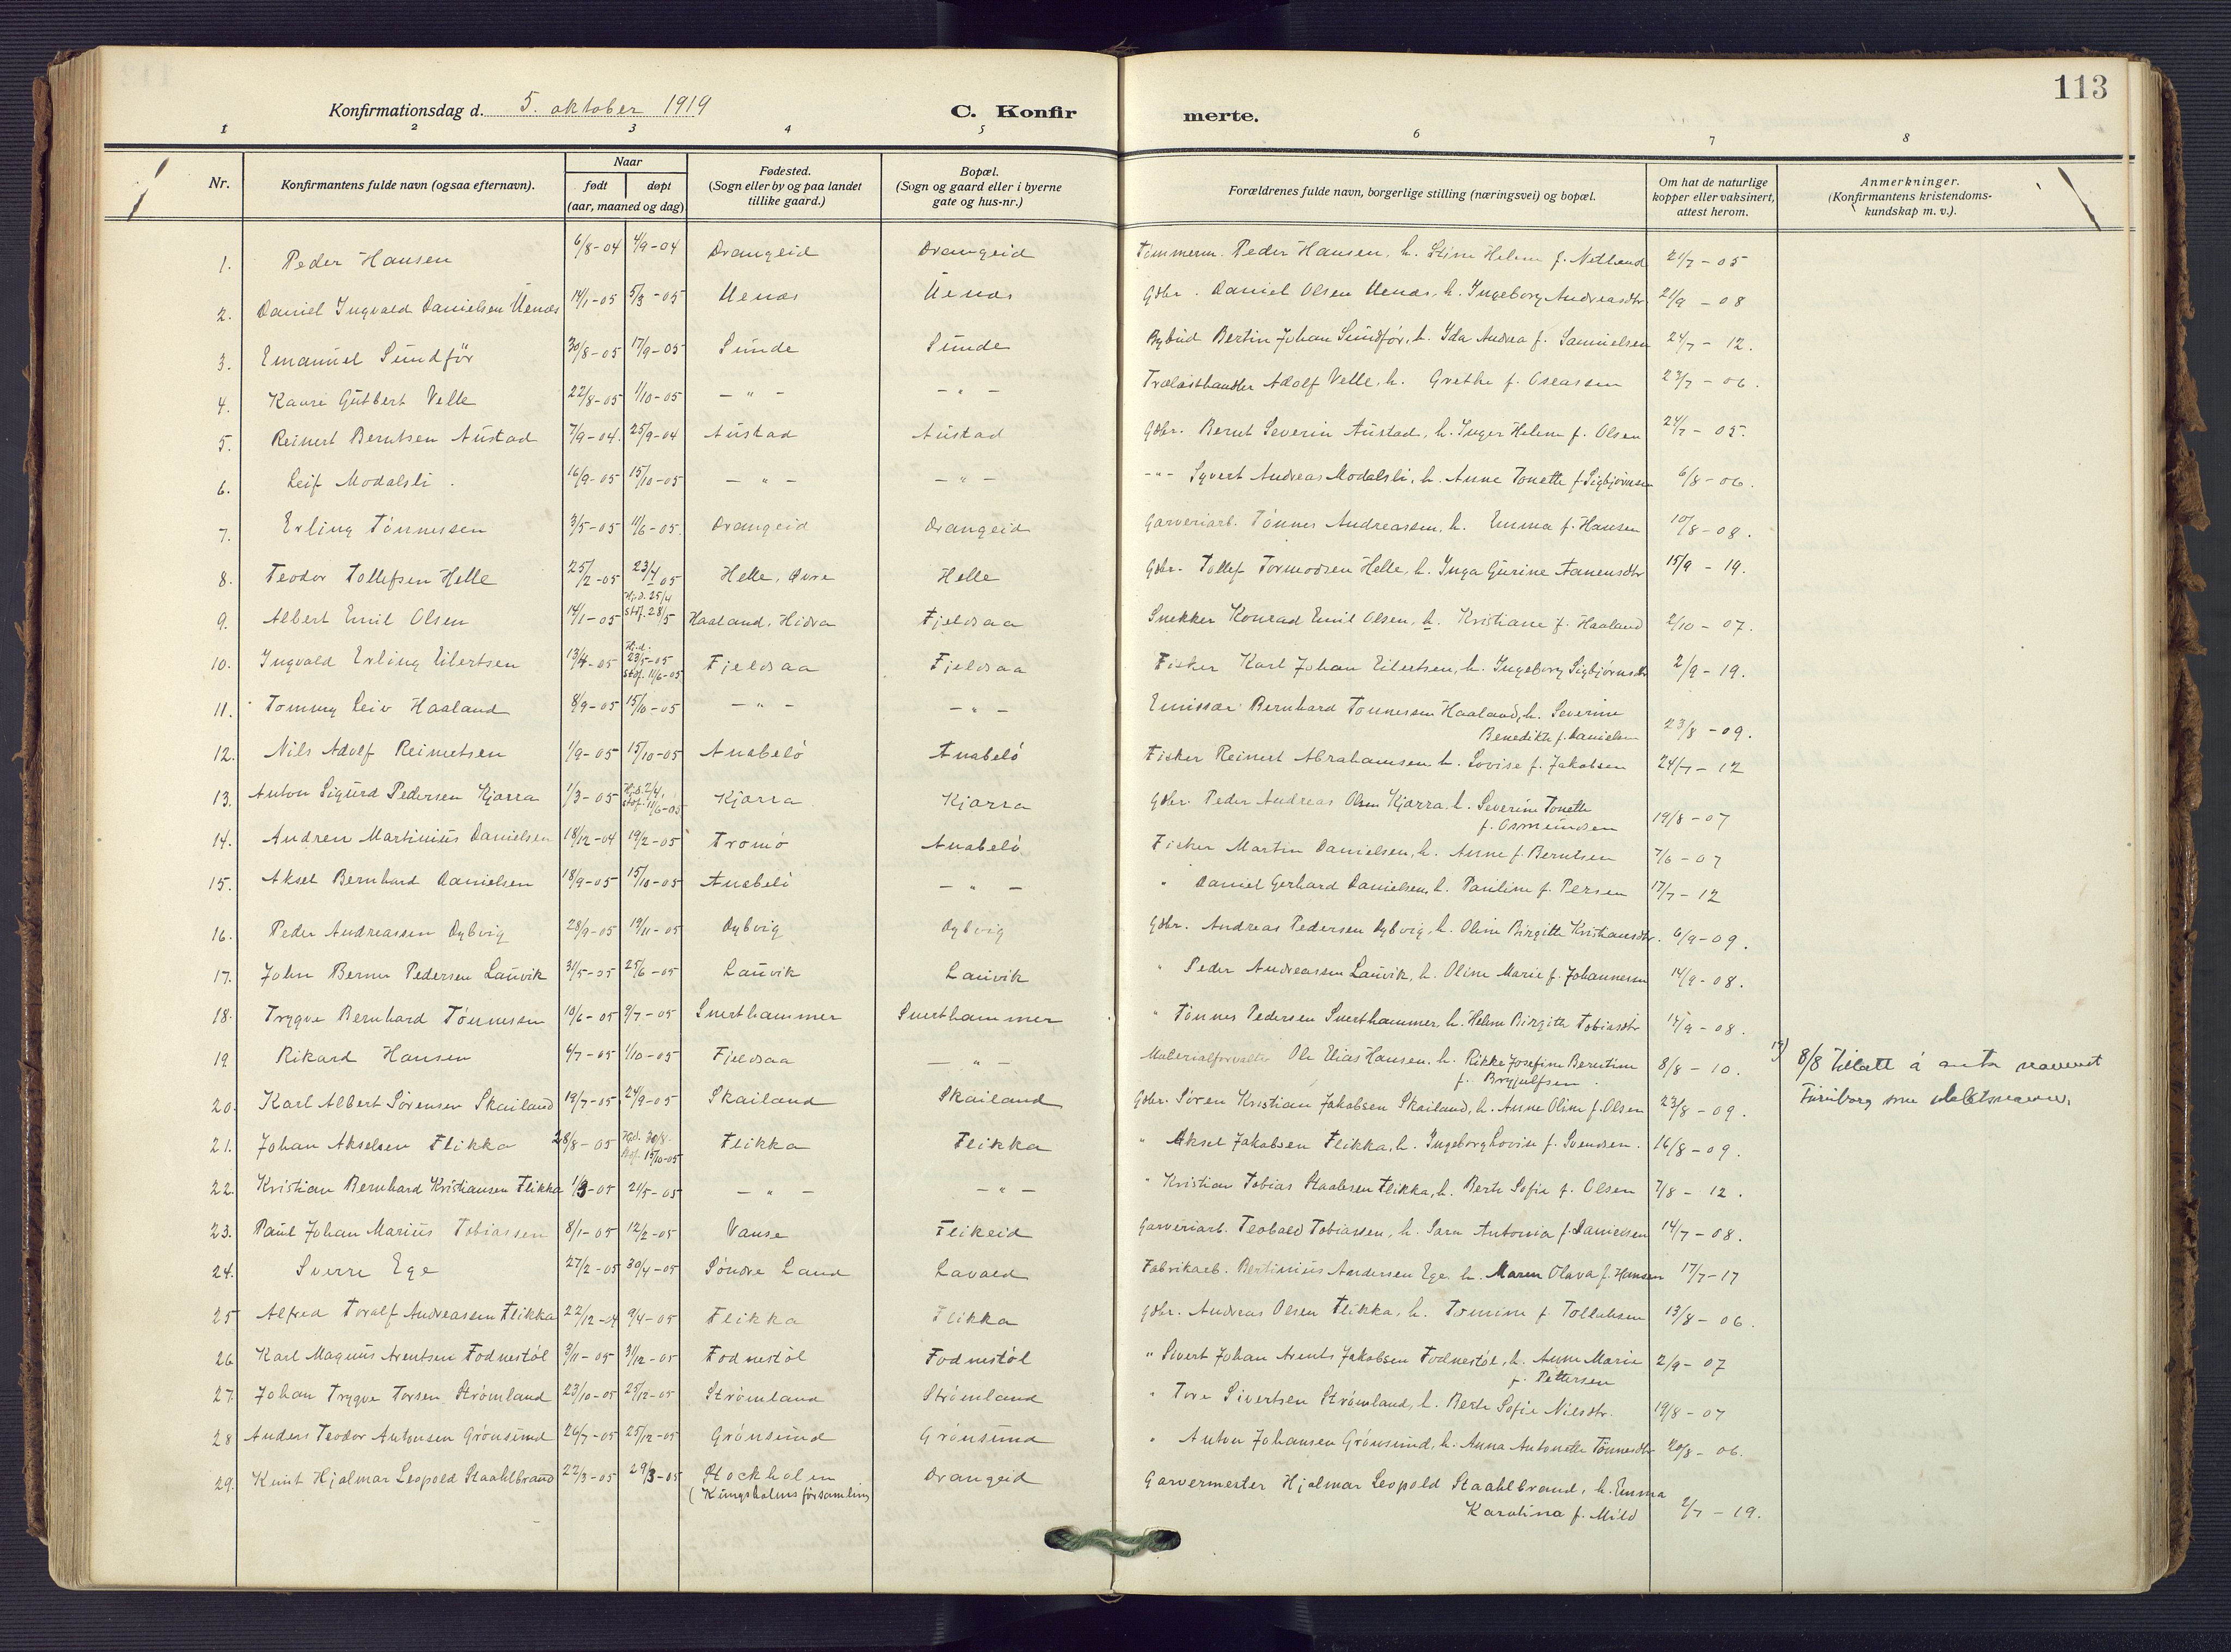 113
Konfirmationsdag d. 5. oktober 1919 C. Konfir merte.
1 2 3 4 5 6 7 8
Nr. Konfirmantens fulde navn (ogsaa efternavn). Naar født døpt (aar, maaned og dag) Fødested. (Sogn eller by og paa landet tillike gaard.) Bopæl. (Sogn og gaard eller i byerne gate og hus-nr.) Forældrenes fulde navn, borgerlige stilling (næringsvei) og bopæl. Om hat de naturlige kopper eller vaksinert, attest herom. Anmerkninger. (Konfirmantens kristendoms-kundskap m. v.).
1. Peder Hansen 6/8-04 4/9-04 Drangeid Drangeid Tømmerm. Peder Hansen, h. Stine Helene f. Netland 21/7-05
2. Daniel Ingvald Danielsen Uenæs 14/1-05 5/3-05 Uenæs Uenæs Gbr. Daniel Olsen Uenæs, h. Ingeborg Andreasdtr 21/9-08
3. Emanuel Sundför 30/8-05 17/9-05 Sunde Sunde Bybud Bertin Johan Sundför, h. Ida Andrea f. Samuelsen 24/7-12.
4. Kaure Gutbert Velle 22/8-05 1/10-05 - " - - " - Trælasthandler Adolf Velle, h. Grethe f. Oseassen 23/7-06.
5. Reinert Berntsen Austad 7/9-04. 25/9-04 Austad Austad Gbr. Bernt Severin Austad, h. Inger Helene f. Olsen 24/7-05.
6. Leif Modalsli. 16/9-05 15/10-05 - " - - " - -"- Syvert Andreas Modalsli, h. Anne Tonette f. Sigbjørnsen 6/8-06.
7. Erling Tönnessen 3/5-05 11/6-05. Drangeid Drangeid Garveriarb. Tönnes Andreassen, h. Emma f. Hansen 10/8-08.
8. Teodor Tollefsen Helle 25/2-05 23/4-05 Helle, Øvre Helle Gbr. Tollef Tormodsen Helle, h. Inga Gurine Aanensdtr 15/9-19.
9. Albert Emil Olsen 14/1-05 Hj.d. 25/4 Stdf. 28/5 Haaland, Hidra Fjeldsaa Snekker Konrad Emil Olsen, h. Kristiane f. Haaland 2/10-07.
10. Ingvald Erling Eilertsen 13/4-05 Hj.d. 23/5-05 Stdf. 11/6-05 Fjeldsaa Fjeldsaa Fisker Karl Johan Eilertsen, h. Ingeborg Sigbjørnsdtr 2/9-19.
11. Tommy Leiv Haaland 8/9-05 15/10-05 - " - - " - Emissær Bernhard Tönnessen Haaland, h. Severine
Benedikte f. Danielsen 23/8-09.
12. Nils Adolf Reinertsen 1/9-05 15/10-05 Anabelö Anabelö Fisker Reinert Abrahamsen h. Lovise f. Jakobsen 24/7-12
13. Anton Sigurd Pedersen Kjørra 1/3-05 Hj.d. 2/4, Stdf. 11/6-05 Kjørra Kjørra Gbr. Peder Andreas Olsen Kjørra, h. Severine Tonette
f. Osmundsen 19/8-07
14. Andreas Martinius Danielsen 18/12-04 19/2-05 Tromö Anabelö Fisker Martin Danielsen, h. Anne f. Berntsen 7/6-07
15. Aksel Bernhard Danielsen 18/9-05 15/10-05 Anabelö - " - " Daniel Gerhard Danielsen, h. Pauline f. Persen 17/7-12
16. Peder Andreassen Dybvig 28/9-05 19/11-05 Dybvig Dybvig Gbr. Andreas Pedersen Dybvig, h. Oline Birgitte Kristiansdtr. 6/9-09.
17. John Berner Pedersen Lauvik 31/5-05 25/6-05 Lauvik Lauvik " Peder Andreassen Lauvik, h. Oline Marie f. Johannesen 14/9-08.
18. Trygve Bernhard Tönnessen 10/6-05 9/7-05 Snerthammer Snerthammer " Tönnes Pedersen Snerthammer, h. Helene Birgitte Tobiasdtr 14/9-08.
19. Rikard Hansen 6/7-05 1/10-05 Fjeldsaa - " - Materialforvalter Ole Elias Hansen, h. Rikke Josefine Berntine
f. Brynjulfsen. 8/8-10. 19) 8/8 tillatt å anta navnet
som slektsnavn.
20. Karl Albert Sørensen Skailand 19/7-05 24/9-05 Skailand Skailand Gbr. Sören Kristian Jakobsen Skailand, h. Anne Oline f. Olsen 23/8-09.
21. Johan Akselsen Flikka 28/8-05 Hj.d. 30/8. Stdf. 15/10-05 Flikka Flikka " Aksel Jakobsen Flikka, h. Ingeborg Lovise f. Svendsen. 16/8-09.
22. Kristian Bernhard Kristiansen Flikka 1/3-05 21/5-05 - " - - " - " Kristian Tobias Staalesen Flikka, h. Berte Sofie f. Olsen 7/8-12.
23. Paul Johan Marius Tobiassen 8/1-05 12/2-05 Vanse Flikeid Garveriarb. Teobald Tobiassen, h. Sara Antonia f. Danielsen 14/7-08.
24. Sverre Ege 27/2-05 30/4-05 Søndre Land Lavold Fabrikarb. Bertinius Andersen Ege h. Maren Olava f. Hansen 17/7-17
25 Alfred Toralf Andreassen Flikka 22/12-04 9/4-05 Flikka Flikka Gbr. Andreas Olsen Flikka, h. Tomine f. Tollaksen 13/8-06.
26 Karl Magnus Arentsen Fodnestöl 3/11-05 31/12-05 Fodnestöl Fodnestöl " Sivert Johan Arents Jakobsen Fodnestöl, h. Anne Marie
f. Pettersen 2/9-07
27. Johan Trygve Torsen Strömland 23/10-05 25/12-05 Strömland Strömland " Tore Sivertsen Strömland, h. Berte Sofie Nilsdtr. 19/8-07
28 Anders Teodor Antonsen Grönsund 26/7-05 25/12-05 Grönsund Grönsund " Anton Johansen Grönsund, h. Anna Antonette Tönnesdtr 20/8-06.
29. Knut Hjalmar Leopold Staahlbrand 22/3-05 29/3-05 Stockholm Drangeid Garvermester Hjalmar Leopold Staahlbrand, h. Emma
(Kungsholms församling Karolina f. Mild 2/7-19.